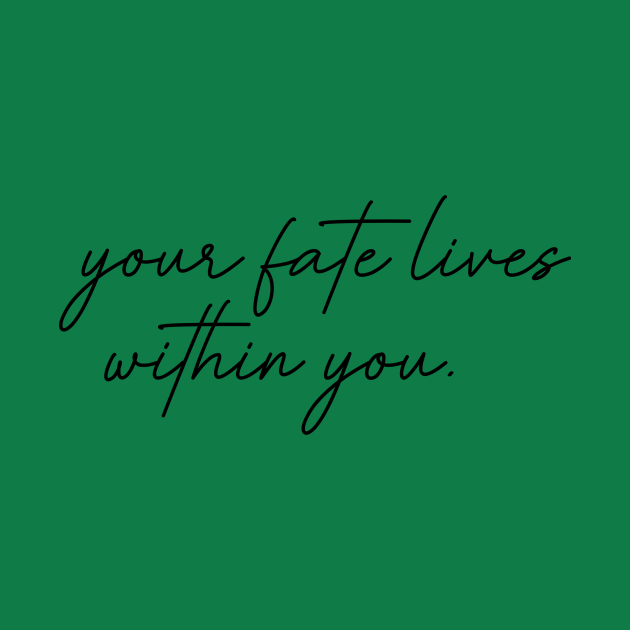 your fate lives
within you.